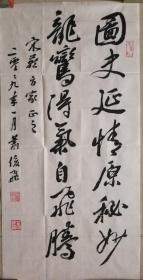 圖史延情原秘妙
龍鸞得氣自飛騰
宋苑方家正之
二零一九年一月